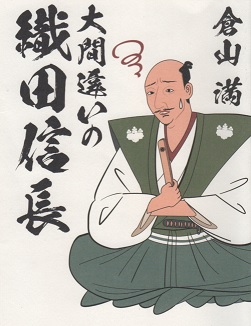 倉山満
大間違いの
織田信長